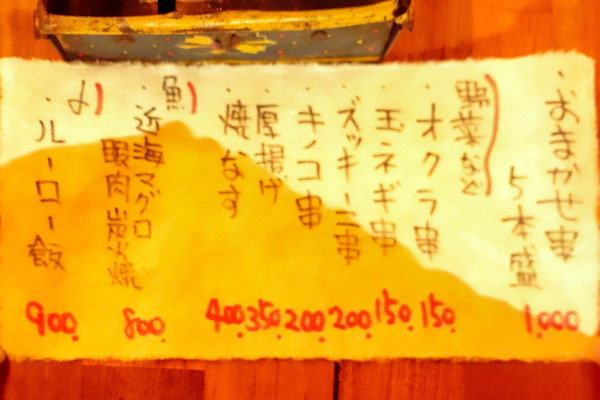 ・おまかせ串
5本盛
1,000
野菜など
・オクラ串 150.
・玉ネギ串 150.
・ズッキーニ串 200.
・キノコ串 200.
・厚揚げ 350.
・焼なす 400.
魚
・近海マグロ
眼肉炭火焼
800.
〆
・ルーロー飯 900.